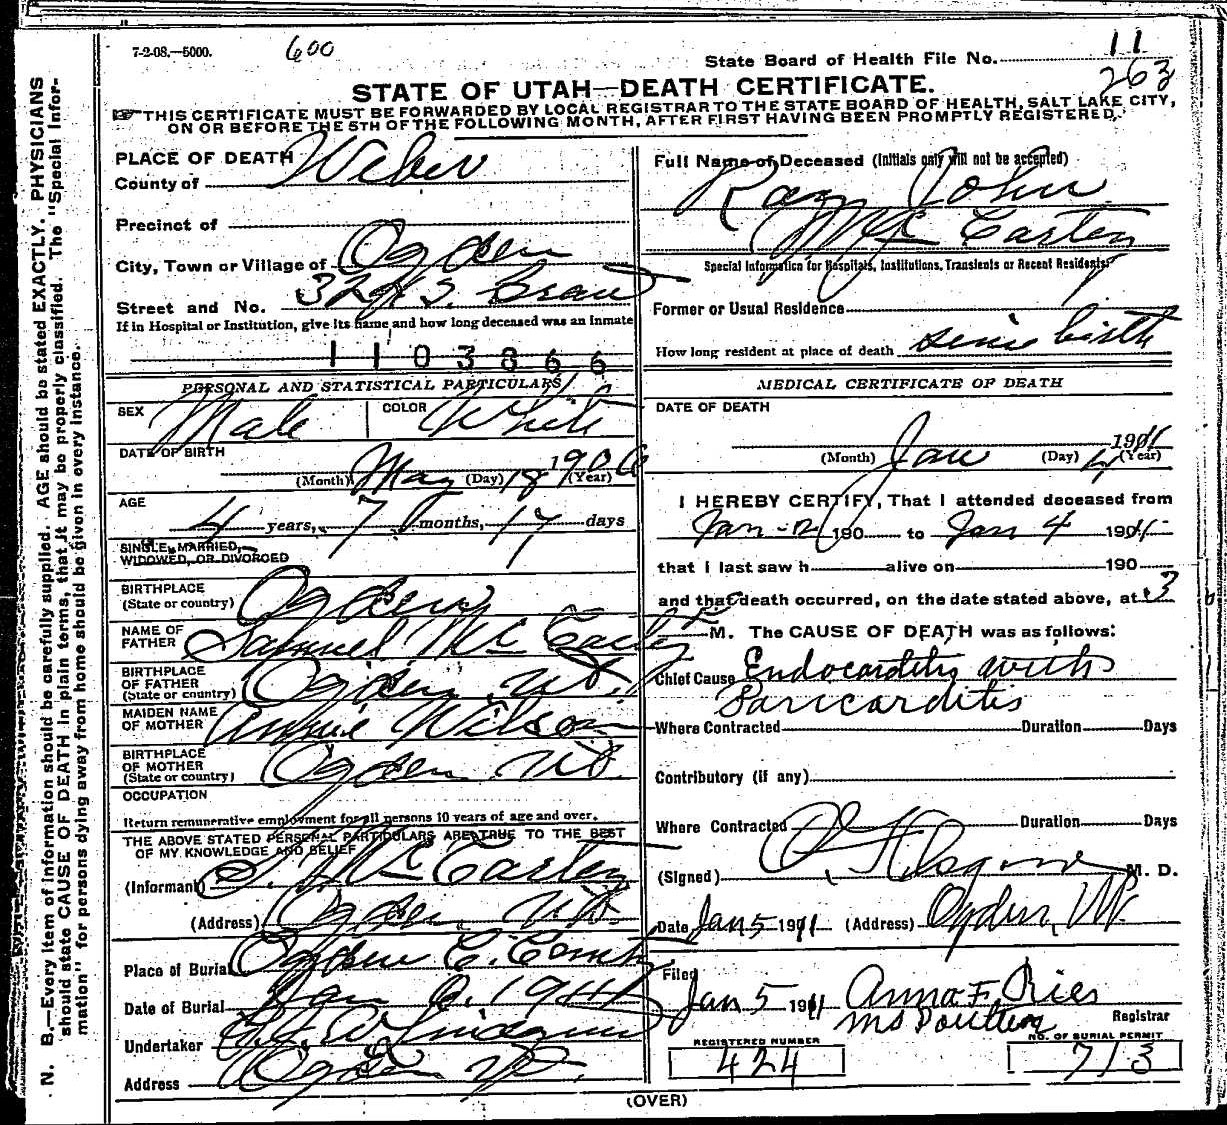 7-2-08.—5000.
600
State Board of Health File No. 11
263
STATE OF UTAH—DEATH CERTIFICATE.
THIS CERTIFICATE MUST BE FORWARDED BY LOCAL REGISTRAR TO THE STATE BOARD OF HEALTH, SALT LAKE CITY,
ON OR BEFORE THE 5TH OF THE FOLLOWING MONTH, AFTER FIRST HAVING BEEN PROMPTLY REGISTERED.
N. B.—Every item of information should be carefully supplied. AGE should be stated EXACTLY. PHYSICIANS
should state CAUSE OF DEATH in plain terms, that it may be properly classified. The "Special Infor-
mation" for persons dying away from home should be given in every instance.
PLACE OF DEATH
County of Weber
Precinct of
City, Town or Village of Ogden
Street and No.
If in Hospital or Institution, give its name and how long deceased was an inmate
1103866
PERSONAL AND STATISTICAL PARTICULARS
SEX Male COLOR White
DATE OF BIRTH
(Month) May (Day) 18 1906 (Year)
AGE
4 years, 7 months, 17 days
SINGLE, MARRIED,
WIDOWED, OR DIVORCED
BIRTHPLACE
(State or country) Ogden
NAME OF
FATHER Samuel Mc Carty
BIRTHPLACE
OF FATHER
(State or country) Ogden Ut.
MAIDEN NAME
OF MOTHER Annie Wilson
BIRTHPLACE
OF MOTHER
(State or country) Ogden Ut.
OCCUPATION
Return remunerative employment for all persons 10 years of age and over.
THE ABOVE STATED PERSONAL PARTICULARS ARE TRUE TO THE BEST
OF MY KNOWLEDGE AND BELIEF
(Informant) S. Mc Carten
(Address) Ogden Ut.
Place of Burial Ogden C. Cemt
Date of Burial Jan
Undertaker
Address Ogden Ut.
Full Name of Deceased (Initials only will not be accepted)
Ray John
Mc Carten
Special Information for Hospitals, Institutions, Transients or Recent Residents.
Former or Usual Residence
How long resident at place of death since birth
MEDICAL CERTIFICATE OF DEATH
DATE OF DEATH
(Month) Jan (Day) 4 1911 (Year)
I HEREBY CERTIFY, That I attended deceased from
Jan 190 to Jan 4 1901
that I last saw h alive on 190
and that death occurred, on the date stated above, at 3
M. The CAUSE OF DEATH was as follows:
Chief Cause Endocarditis with
Paricarditis
Where Contracted Duration Days
Contributory (if any)
Where Contracted Duration Days
(Signed) Osgood M. D.
Date Jan 5 1911 (Address) Ogden, Ut.
Filed
Jan 5 1911 Anna F. Ries
Ms Poulter Registrar
REGISTERED NUMBER
424
NO. OF BURIAL PERMIT
713
(OVER)